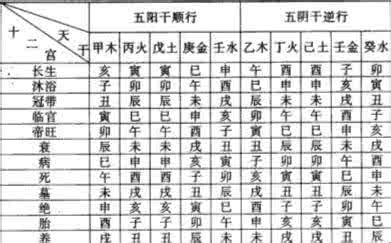 十二宫 天干 五阳干顺行 五阴干逆行
甲木 丙火 戊土 庚金 壬水 乙木 丁火 己土 壬金 癸水
长生 亥 寅 寅 巳 申 午 酉 酉 子 卯
沐浴 子 卯 卯 午 酉 巳 申 申 亥 寅
冠带 丑 辰 辰 未 戌 辰 未 未 戌 丑
临官 寅 巳 巳 申 亥 卯 午 午 酉 子
帝旺 卯 午 午 酉 子 寅 巳 巳 申 亥
衰 辰 未 未 戌 丑 丑 辰 辰 未 戌
病 巳 申 申 亥 寅 子 卯 卯 午 酉
死 午 酉 酉 子 卯 亥 寅 寅 巳 申
墓 未 戌 戌 丑 辰 戌 丑 丑 辰 未
绝 申 亥 亥 寅 巳 酉 子 子 卯 午
胎 酉 子 子 卯 午 申 亥 亥 寅 巳
养 戌 丑 丑 辰 未 未 戌 戌 丑 辰